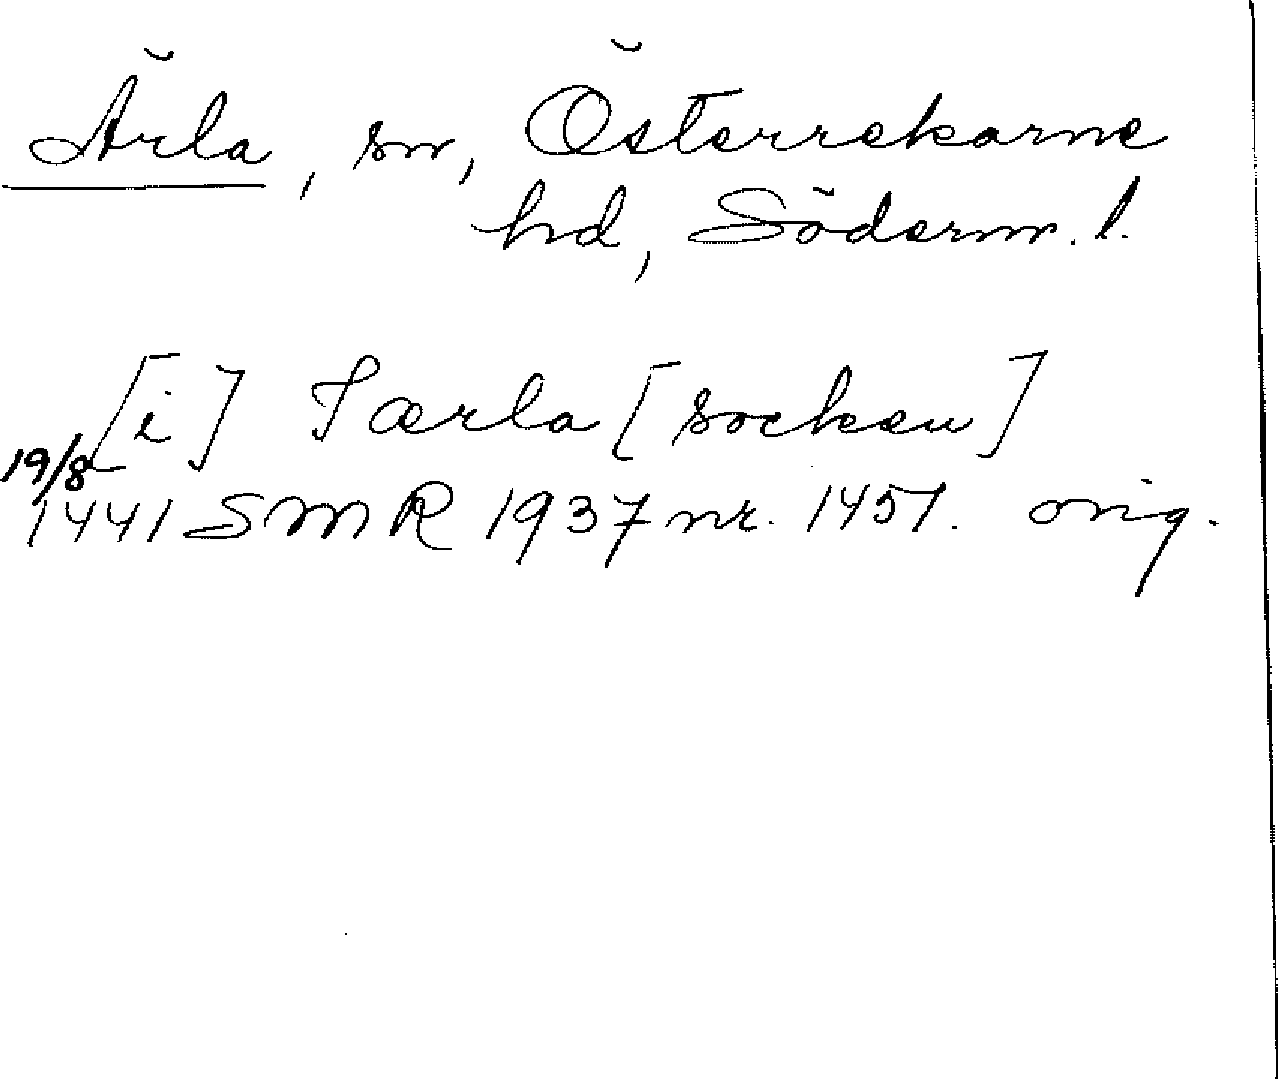 Ärla, sn, Österrekarne
hd, Söderm. l.
[i] Særla [socken]
19/8
1441 SMR 1937 nr. 1451. orig.